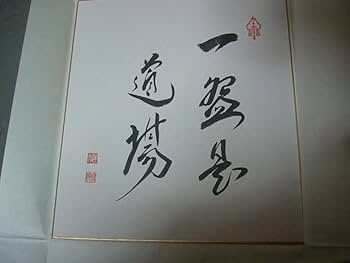 一盌是
道場